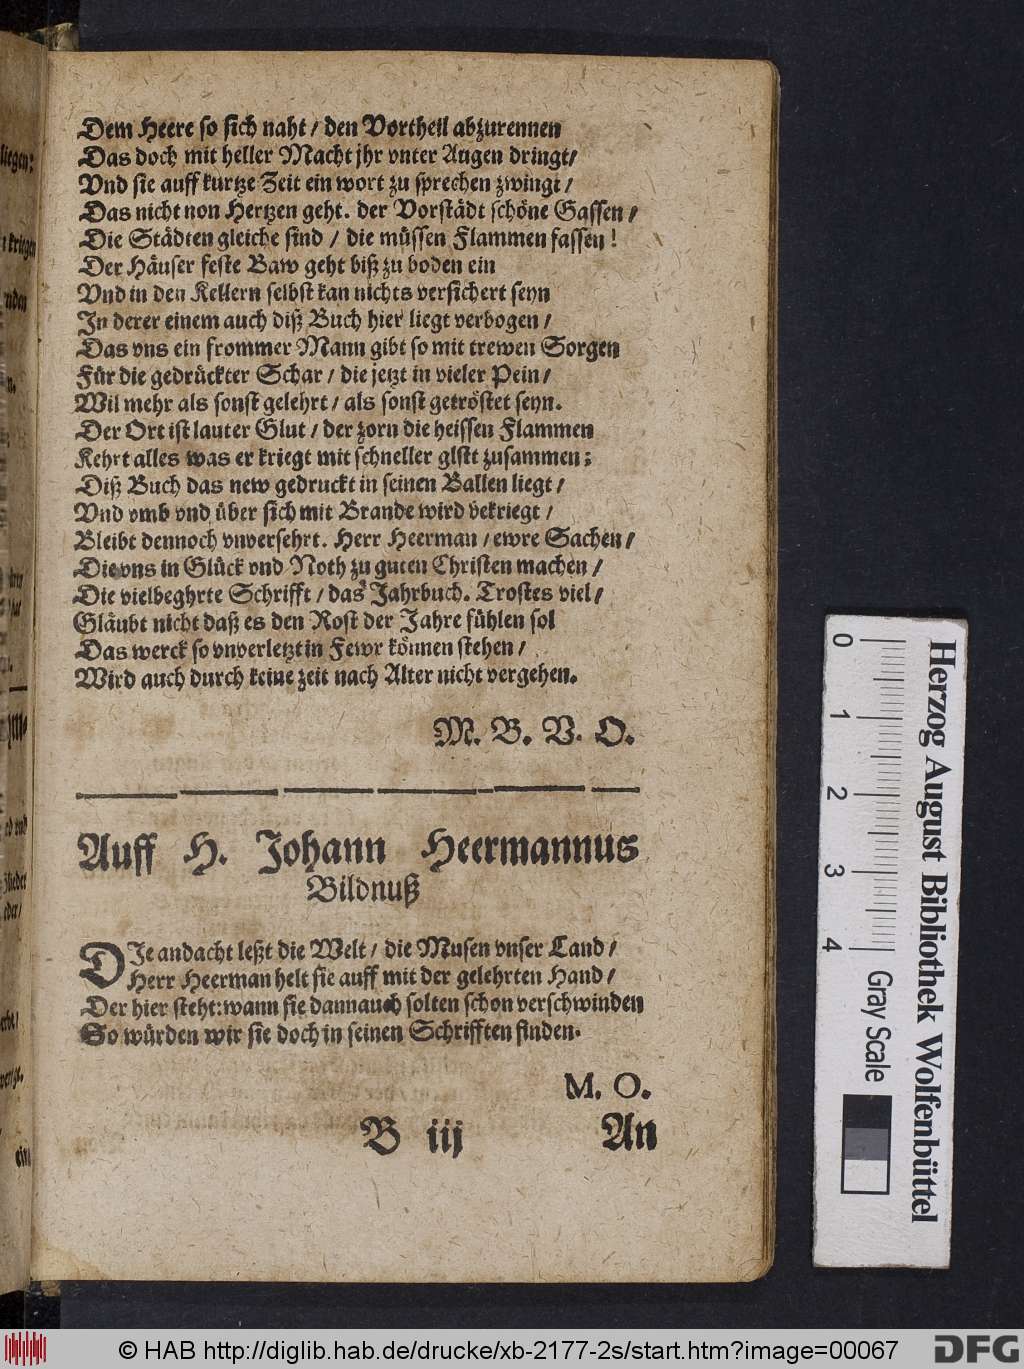 Dem Heere so sich naht / den Vortheil abzurennen
Das doch mit heller Macht jhr vnter Augen dringt/
Vnd sie auff kurtze Zeit ein wort zu sprechen zwingt /
Das nicht non Hertzen geht. der Vorstädt schöne Gassen /
Die Städten gleiche sind / die müssen Flammen fassen !
Der Häuser feste Baw geht biß zu boden ein
Vnd in den Kellern selbst kan nichts versichert seyn
In derer einem auch diß Buch hier liegt verbogen /
Das vns ein frommer Mann gibt so mit trewen Sorgen
Für die gedrückter Schar / die jetzt in vieler Pein /
Wil mehr als sonst gelehrt / als sonst getröstet seyn.
Der Ort ist lauter Glut / der zorn die heissen Flammen
Kehrt alles was er kriegt mit schneller glstt zusammen;
Diß Buch das new gedruckt in seinen Ballen liegt /
Vnd vmb vnd über sich mit Brande wird bekriegt /
Bleibt dennoch vnversehrt. Herr Heerman / ewre Sachen /
Die vns in Glück vnd Noth zu guten Christen machen /
Die vielbeghrte Schrifft / das Jahrbuch. Trostes viel /
Gläubt nicht daß es den Rost der Jahre fühlen sol
Das werck so vnverletzt in Fewr können stehen /
Wird auch durch keine zeit nach Alter nicht vergehen.
M. B. V. O.
Auff H. Johann Heermannus
Bildnuß
DIe andacht leßt die Welt / die Musen vnser Land /
Herr Heerman helt sie auff mit der gelehrten Hand /
Der hier steht: wann sie dannauch solten schon verschwinden
So würden wir sie doch in seinen Schrifften finden.
M. O.
B iij An
0 1 2 3 4 Gray Scale
Herzog August Bibliothek Wolfenbüttel
© HAB http://diglib.hab.de/drucke/xb-2177-2s/start.htm?image=00067
DFG